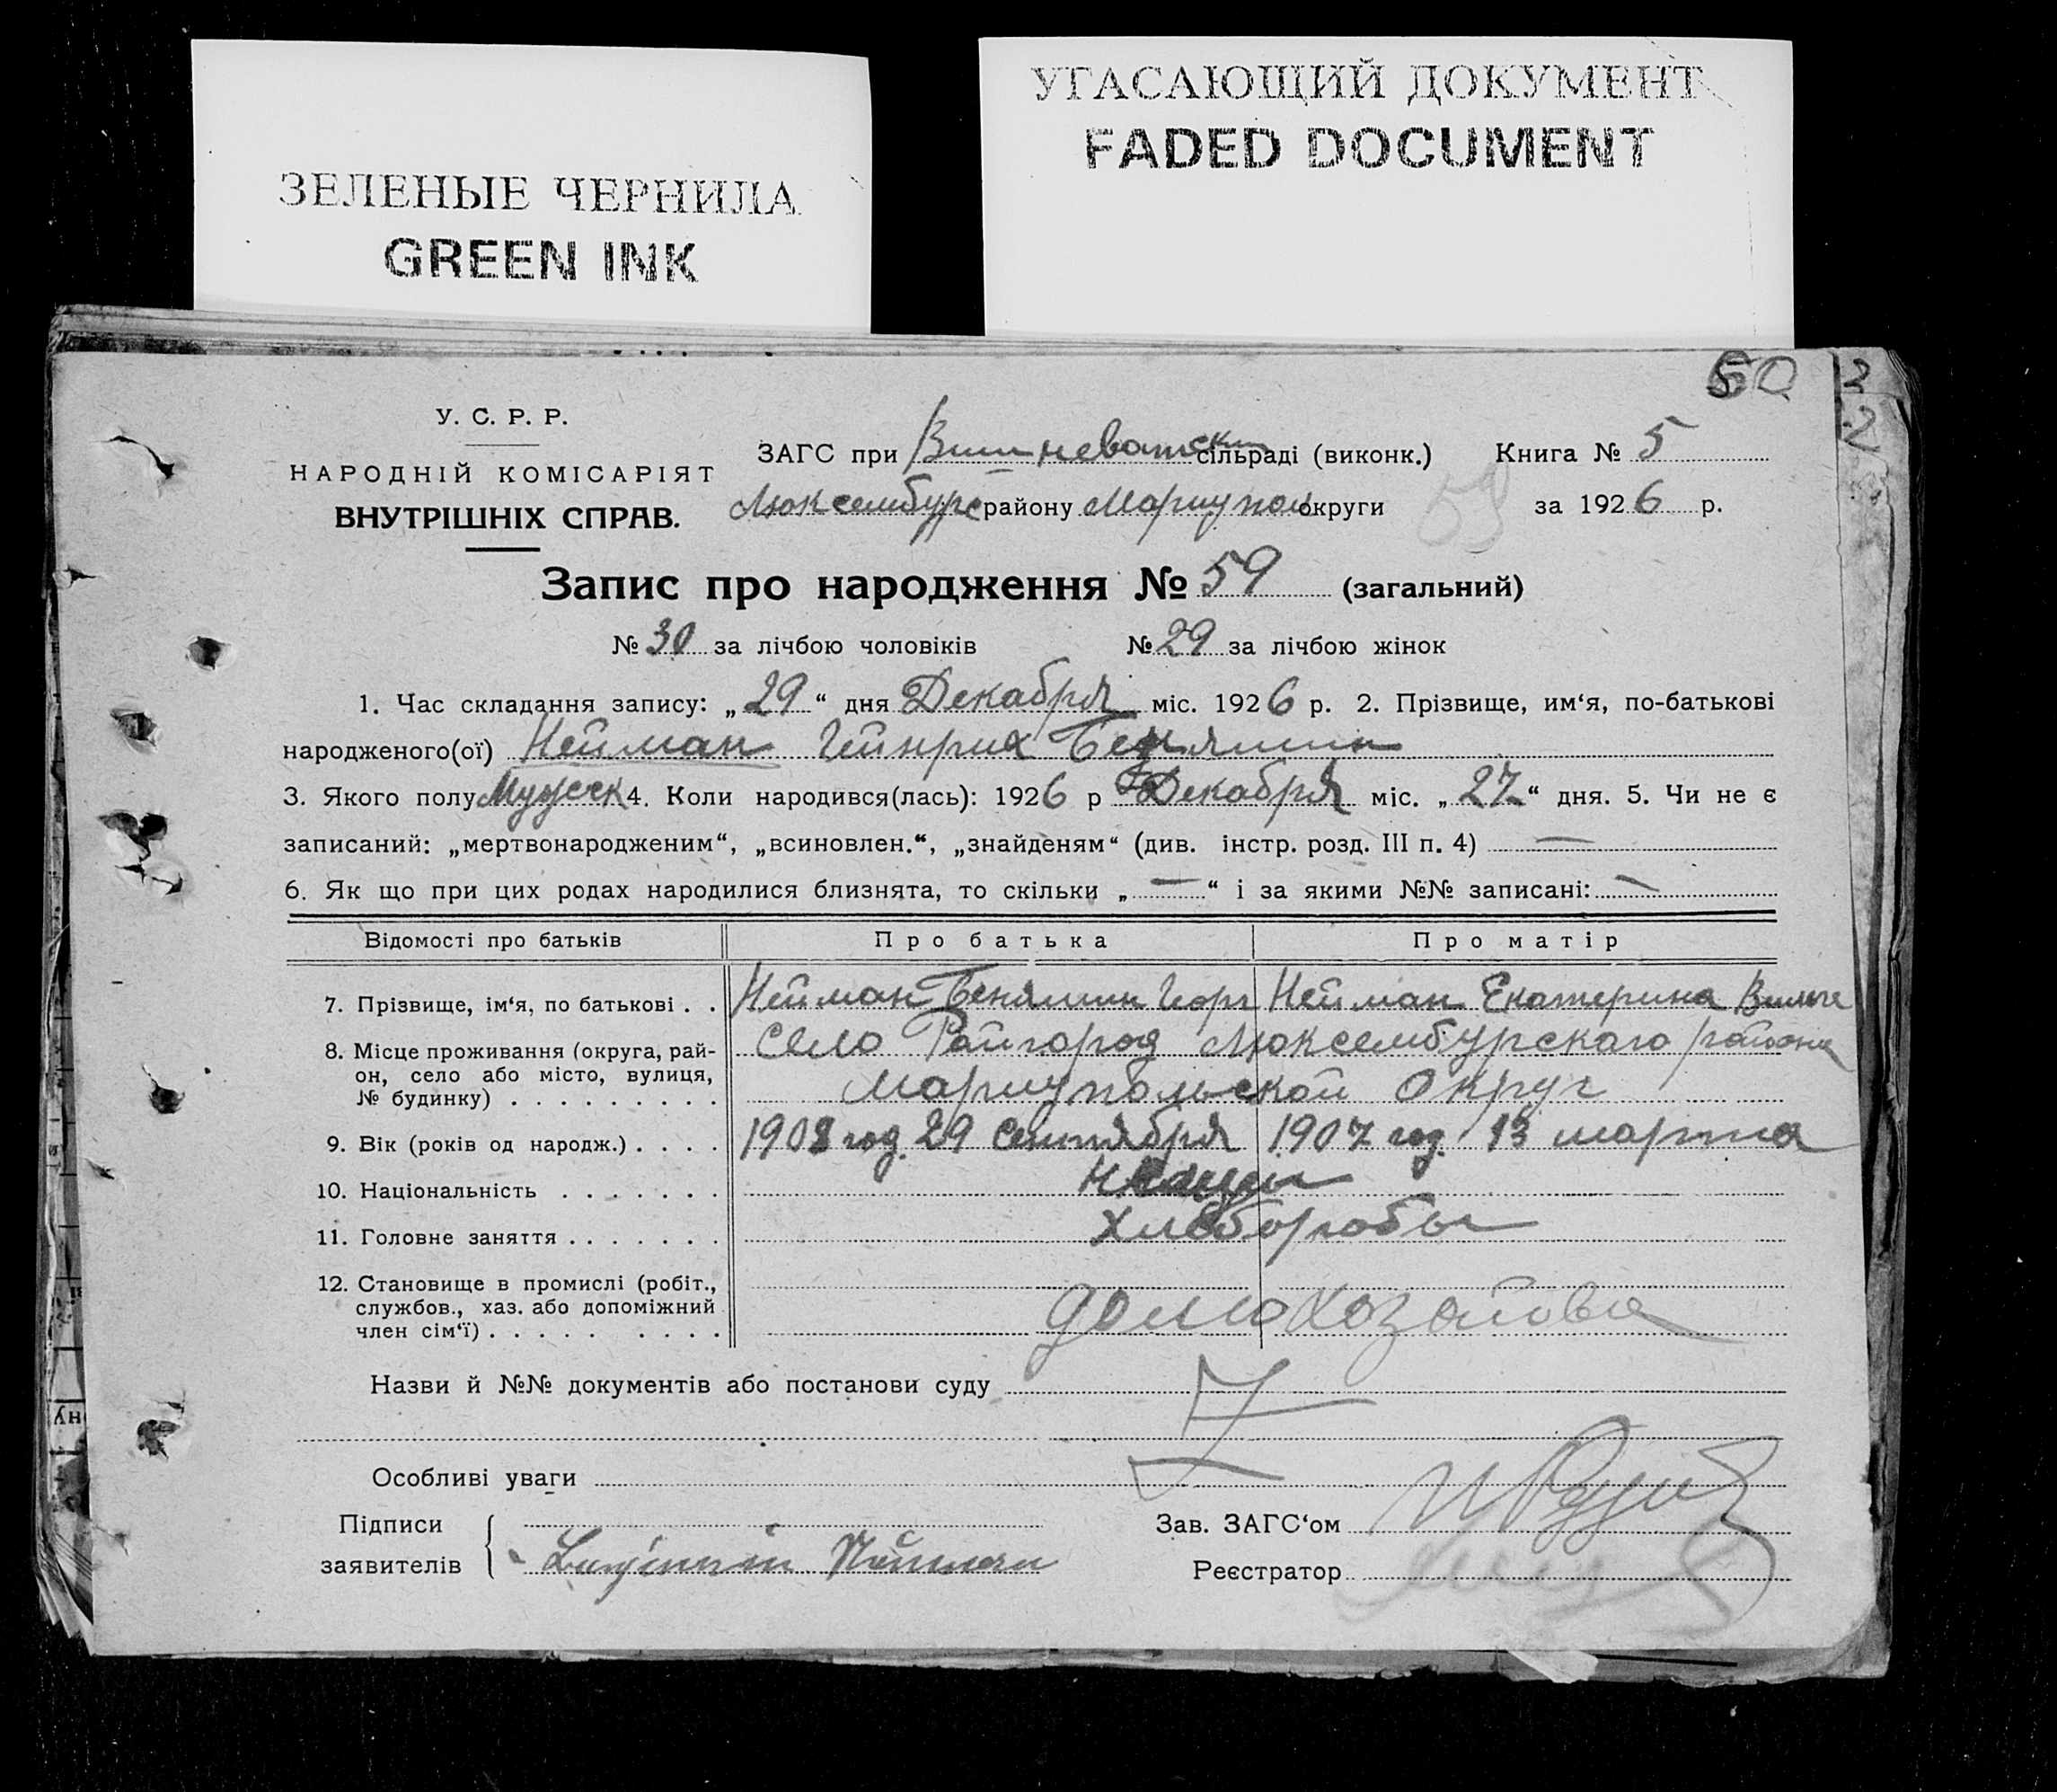 УГАСАЮЩИЙ ДОКУМЕНТ
FADED DOCUMENT
ЗЕЛЕНЫЕ ЧЕРНИЛА
GREEN INK
50
У. С. Р. Р.
НАРОДНІЙ КОМІСАРІЯТ
ВНУТРІШНІХ СПРАВ.
ЗАГС при Вишневатским сільраді (виконк.) Книга № 5
Люксембурс району Мариупол округи за 1926 р.
Запис про народження № 59 (загальний)
№ 30 за лічбою чоловіків № 29 за лічбою жінок
1. Час складання запису: „29“ дня Декабря міс. 1926 р. 2. Прізвище, им‘я, по-батькові
народженого(ої) Нейман Гейнрих Бенямин
3. Якого полу Мужеск 4. Коли народився(лась): 1926 р Декабря міс. „27“ дня. 5. Чи не є
записаний: „мертвонародженим“, „всиновлен.“, „знайденям“ (див. інстр. розд. III п. 4) —
6. Як що при цих родах народилися близнята, то скільки „—“ і за якими №№ записані: —
Відомості про батьків Про батька Про матір
7. Прізвище, ім‘я, по батькові . . Нейман Бенямин Георг Нейман Екатерина
8. Місце проживання (округа, рай-
он, село або місто, вулиця,
№ будинку) . . . . . . . . .
село Райгород Люксембурскаго района
Мариупольской Округ
9. Вік (років од народж.) . . . . 1903 год. 29 Сентября 1907 год. 13 марта
10. Національність . . . . . . . немцы
11. Головне заняття . . . . . . . Хлеборобы
12. Становище в промислі (робіт.,
службов., хаз. або допоміжний
член сім‘ї) . . . . . . . . .
домохозайова
Назви й №№ документів або постанови суду
Особливі уваги
Підписи
заявителів
Зав. ЗАГС‘ом
Реєстратор